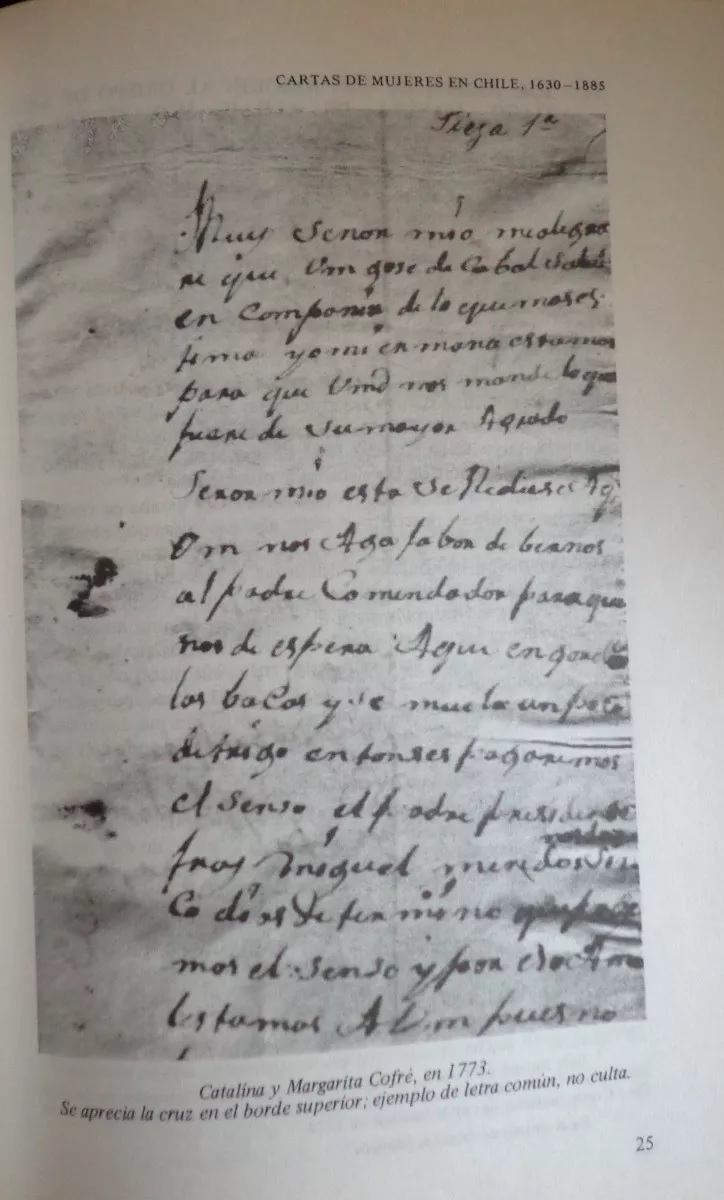 CARTAS DE MUJERES EN CHILE, 1630–1885
Pieza 1ª
Muy Señor mío mealegra
re que Vm gose de Cabal Salud
en Compania de lo que mas es
tima yo mi ermana estamos
para que Vmd nos mande lo que
fuere de su mayor Agrado
Señor mio esta se Reduse a q
Vm nos Aga fabor de bernos
al padre Comendador para que
nos de espera Aqui engorden
las bacas y se mue la un poco
de trigo entonses pagaremos
el senso el padre presidente
fray Miguel
Co dias de termino
mos el senso y por eso
lestamos A Vm pues no
Catalina y Margarita Cofré, en 1773.
Se aprecia la cruz en el borde superior; ejemplo de letra común, no culta.
25